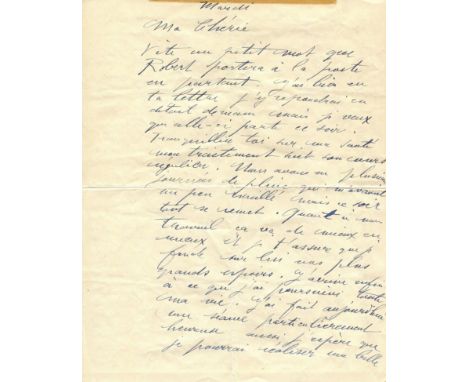 Mardi
Ma Chérie
Vite un petit mot que
Robert portera à la poste
en partant. J'ai bien eu
ta lettre j'y répondrai en
détail demain mais je veux
que celle-ci parte ce soir.
Tranquillise toi sur ma santé
mon traitement suit son cours
régulier. Nous avons eu plusieurs
journées de pluie qui m'avaient
un peu mais ce soir
tout se remet. Quant à mon
travail ça va de mieux en
mieux et je t'assure que je
fonde sur lui nos plus
grands espoirs. J'arrive enfin
à ce que j'ai poursuivi toute
ma vie. J'ai fait aujourd'hui
une séance particulièrement
heureuse aussi j'espère que
je pourrai réaliser une belle